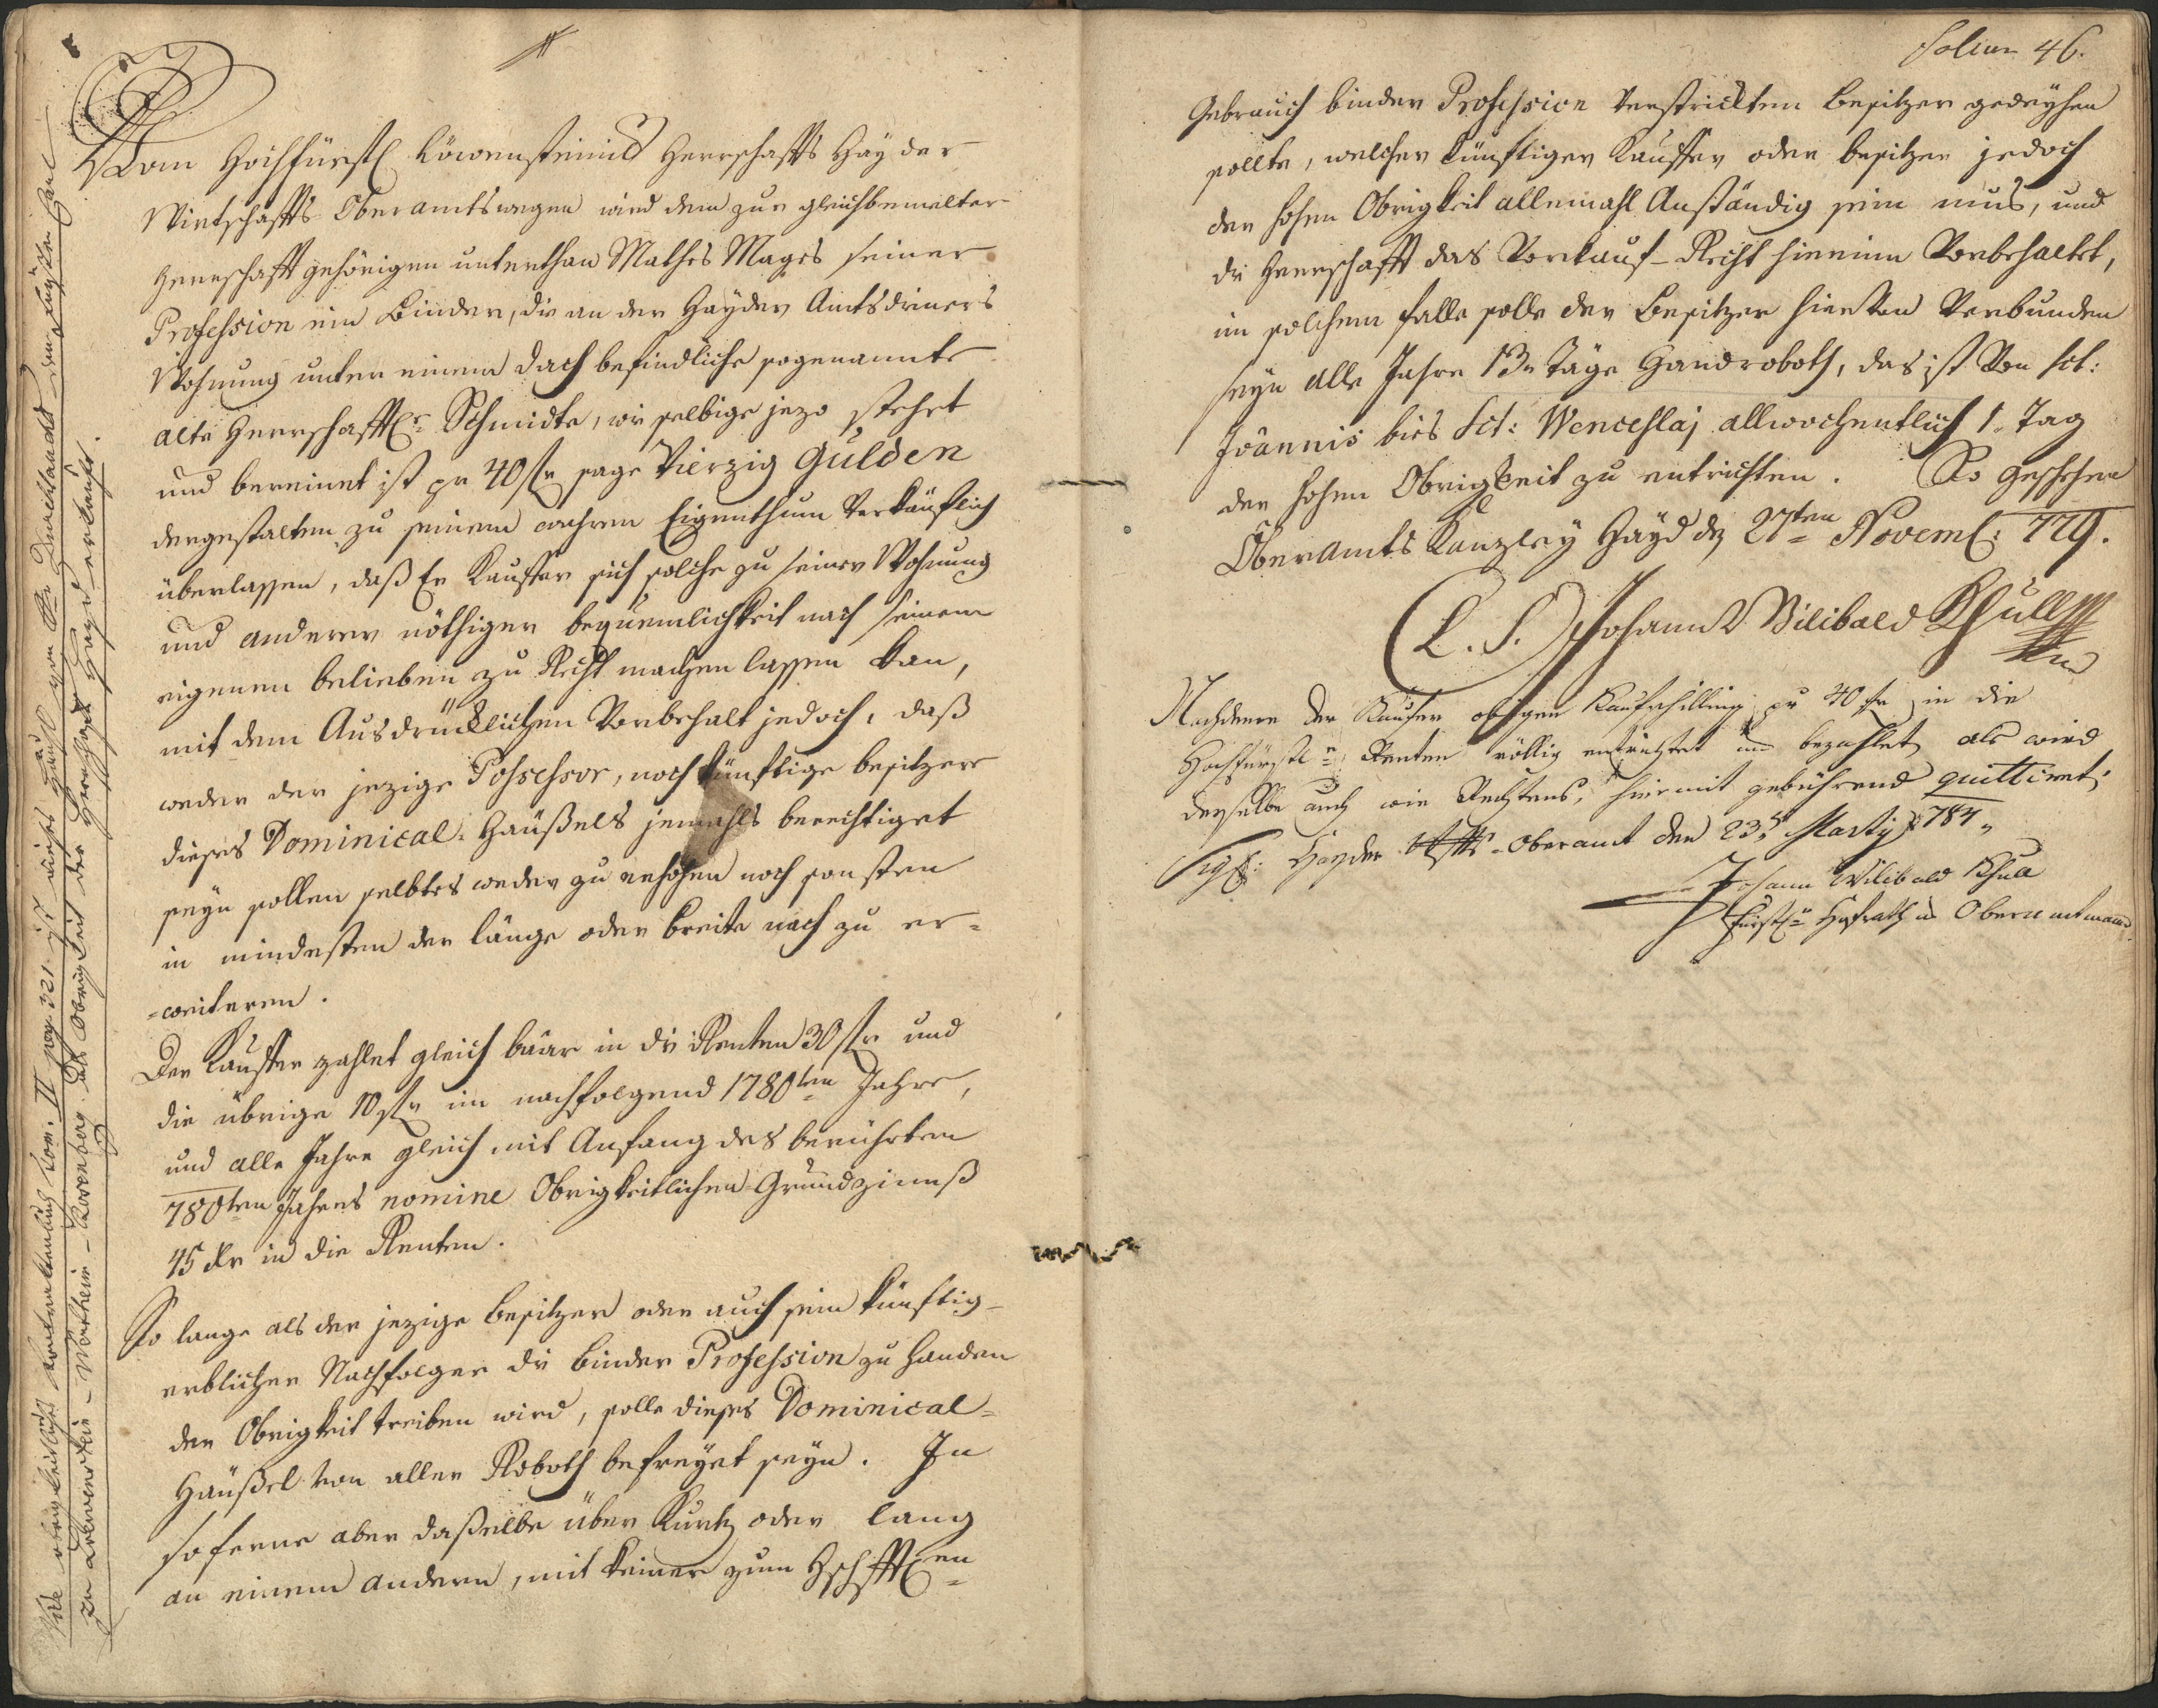 Vom Hochfürstl Löwensteinis Herrschaffts Hayder
Wirtschaffts Oberamtswegen wird dem zur gleichbemelter
Herrschafft gehörigen unterthan Mathes Mages seiner
Profession ein Binder, die an der Hayder Amtsdieners
Wohnung unter einem Dach befindliche sogenannte
alte Herrschafftl. Schmidte, wie selbige jezo stehet
und bereinet ist pr 40 fr sage Vierzig Gulden
dergestalten zu seinem wahren Eigenthum Verkäuflich
überlassen, daß Er Kauffer sich solche zu seiner Wohnung
und anderer nöthiger bequemlichkeit nach seinem
eigenen belieben zu Recht machen lassen kan,
mit dem Ausdrücklichen Vorbehalt jedoch, daß
weder der jezige Possessor, noch künftige besitzere
dieses Dominical-Häußels jemahls berechtiget
seyn sollen selbtes weder zu erhöhen noch sonsten
in mindesten der länge oder breite nach zu er=
=weiteren.
Der Kauffer zahlet gleich báár in die Renten 30 fr und
die übrige 10 fr im nachfolgend 1780ten Jahre,
und alle Jahre gleich mit Anfang des berührten
780ten Jahres nomine Obrigkeitlichen Grundzinnß
45 Xr in die Renten.
So lange als der jezige besitzer oder auch sein künftig=
erblicher Nachfolger die binder Profession zu Handen
der Obrigkeit treiben wird, solle dieses Dominical=
Häußel von aller Roboth befreyet seyn. In
soferne aber daßelbe über Kurtz oder lang
an einem andern, mit keiner zum Hschfftlen=
Vide obrigkeitliches Contractenbuch Tom. II pag. 321 ist dieses Häusl von Sr Durchlaucht dem Fürsten Carl
zu Löwenstein-Wertheim-Rosenberg als Obrigkeit der Herrschaft Hayd erkauft.
Folium 46.
Gebrauch binder Profession Verstrickten besitzer gedeyhen
sollte, welcher künftiger Kauffer oder besitzer jedoch
der hohen Obrigkeit allemahl Anständig sein mus, und
die Herrschafft das Vorkauf-Recht hierinn Vorbehaltet,
im solchem falle solle der besitzer hievon Verbunden
seyn alle Jahre 13 Täge Handroboth, das ist Von Sct:
Joannis bies Sct: Wenceslaj allwochentlich 1. Tag
der hohen Obrigkeit zu entrichten. So geschehen
Oberamts Kanzley Hayd dz 27ten Novembl: 779.
(L. S.) Johann Wilibald Khull
Nachdeme der Käufer obigen Kaufschilling pr 40 fr in die
Hochfürstle Renten völlig entrichtet und bezahlet, als wird
derselbe auch wie Rechtens, hiermit gebührend quittiret;
Sigl: Hayder Wschffts-Oberamt den 23n Martij 784.
Johann Wilibald Khull
Fürstler Hofrath u Oberamtmann.